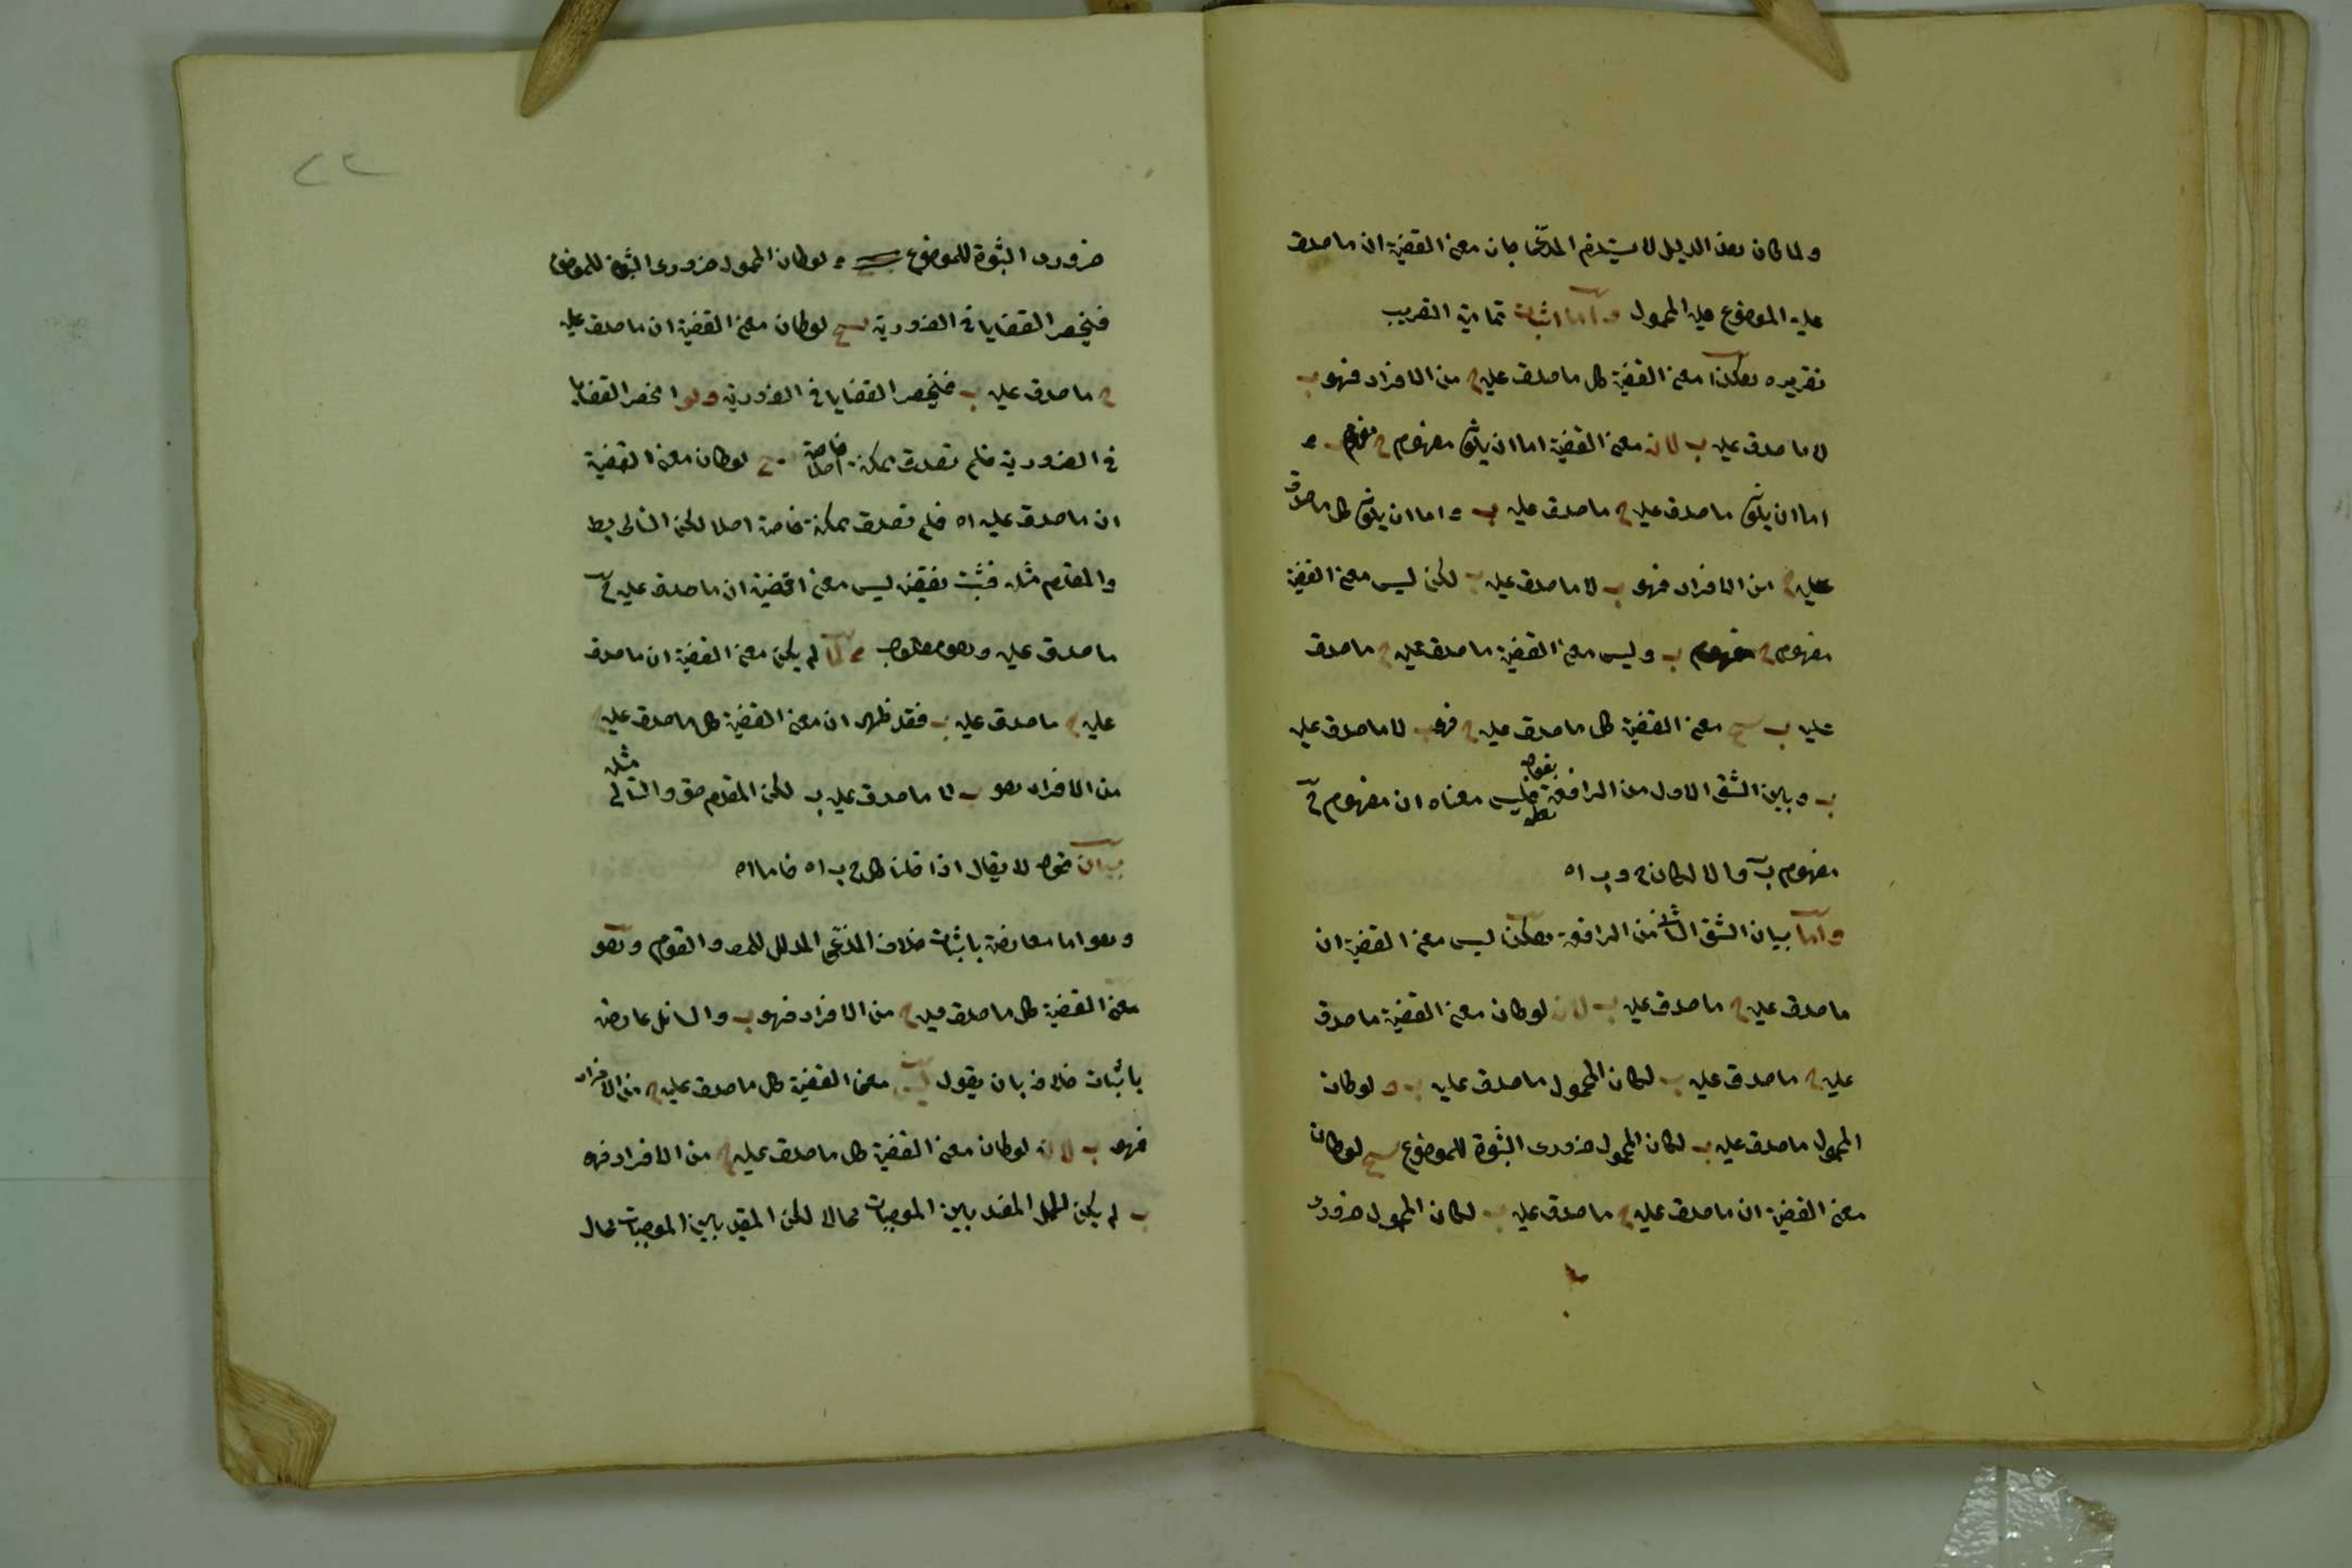 ولما كان هذا الدليل لا يستلزم المدعى بان معنى القضية ان ما صدق
عليه الموضوع عليه المحمول واما اثبات تمامية التقريب
تقريره هكذا معنى القضية كل ما صدق عليه ج من الافراد فهو ب
لا ما صدق عليه ب لان معنى القضية اما ان يكون مفهوم ج مفهوم ب و
اما ان يكون ما صدق عليه ج ما صدق عليه ب و اما ان يكون كل ما صدق
عليه ج من الافراد فهو ب لا ما صدق عليه ب لكن ليس معنى القضية
مفهوم ج مفهوم ب وليس معنى القضية ما صدق عليه ج ما صدق
عليه ب معنى القضية كل ما صدق عليه ج فهو ب لا ما صدق عليه
ب وبين الشق الاول من الرافعة بقوله فليس معناه ان مفهوم ج
مفهوم ب والا لكان ج و ب اه
واما بيان الشق الثاني من الرافعة هكذا ليس معنى القضية ان
ما صدق عليه ج ما صدق عليه ب لان لو كان معنى القضية ما صدق
عليه ج ما صدق عليه ب لكان المحمول ما صدق عليه ب و لو كان
المحمول ما صدق عليه ب لكان المحمول ضرورى الثبوت للموضوع لو كان
معنى القضية ان ما صدق عليه ج ما صدق عليه ب لكان المحمول ضرورى
٢٢
ضرورى الثبوت للموضوع و لو كان المحمول ضرورى الثبوت للموضوع
فينحصر القضايا فى الضرورية لو كان معنى القضية ان ما صدق عليه
ج ما صدق عليه ب فينحصر القضايا فى الضرورية ولو انحصر القضايا
فى الضرورية فلم تصدق ممكنة خاصة اصلا لو كان معنى القضية
ان ما صدق عليه اه فلم تصدق ممكنة خاصة اصلا لكن التالى بط
والمقدم مثله فثبت نقيضه ليس معنى القضية ان ما صدق عليه ج
ما صدق عليه وهو مطلوب لم يكن معنى القضية ان ما صدق
عليه ج ما صدق عليه ب فقد ظهر ان معنى القضية كل ما صدق عليه ج
من الافراد هو ب لا ما صدق عليه ب لكن المقدم حق والتالى مثله
بيان قوله لا يقال اذا قلنا كل ج ب اه فاما اه
وهو اما معارضة باثبات خلاف المدعى المدلل للمص والقوم وهو
معنى القضية كل ما صدق عليه ج من الافراد فهو ب والسائل عارضه
باثبات خلافه بان يقول ليس معنى القضية كل ما صدق عليه ج من الافراد
فهو ب لان لو كان معنى القضية كل ما صدق عليه ج من الافراد فهو
ب لم يكن الحمل المفيد بين الموجبات محالا لكن المفيد بين الموجبات محال